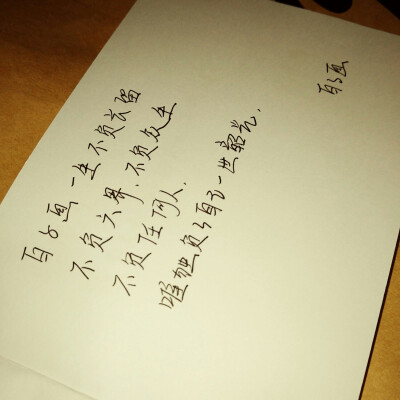 白子画一生不负长留
不负六界、不负众生
不负任何人.
唯独负了自己一世韶光.
白子画